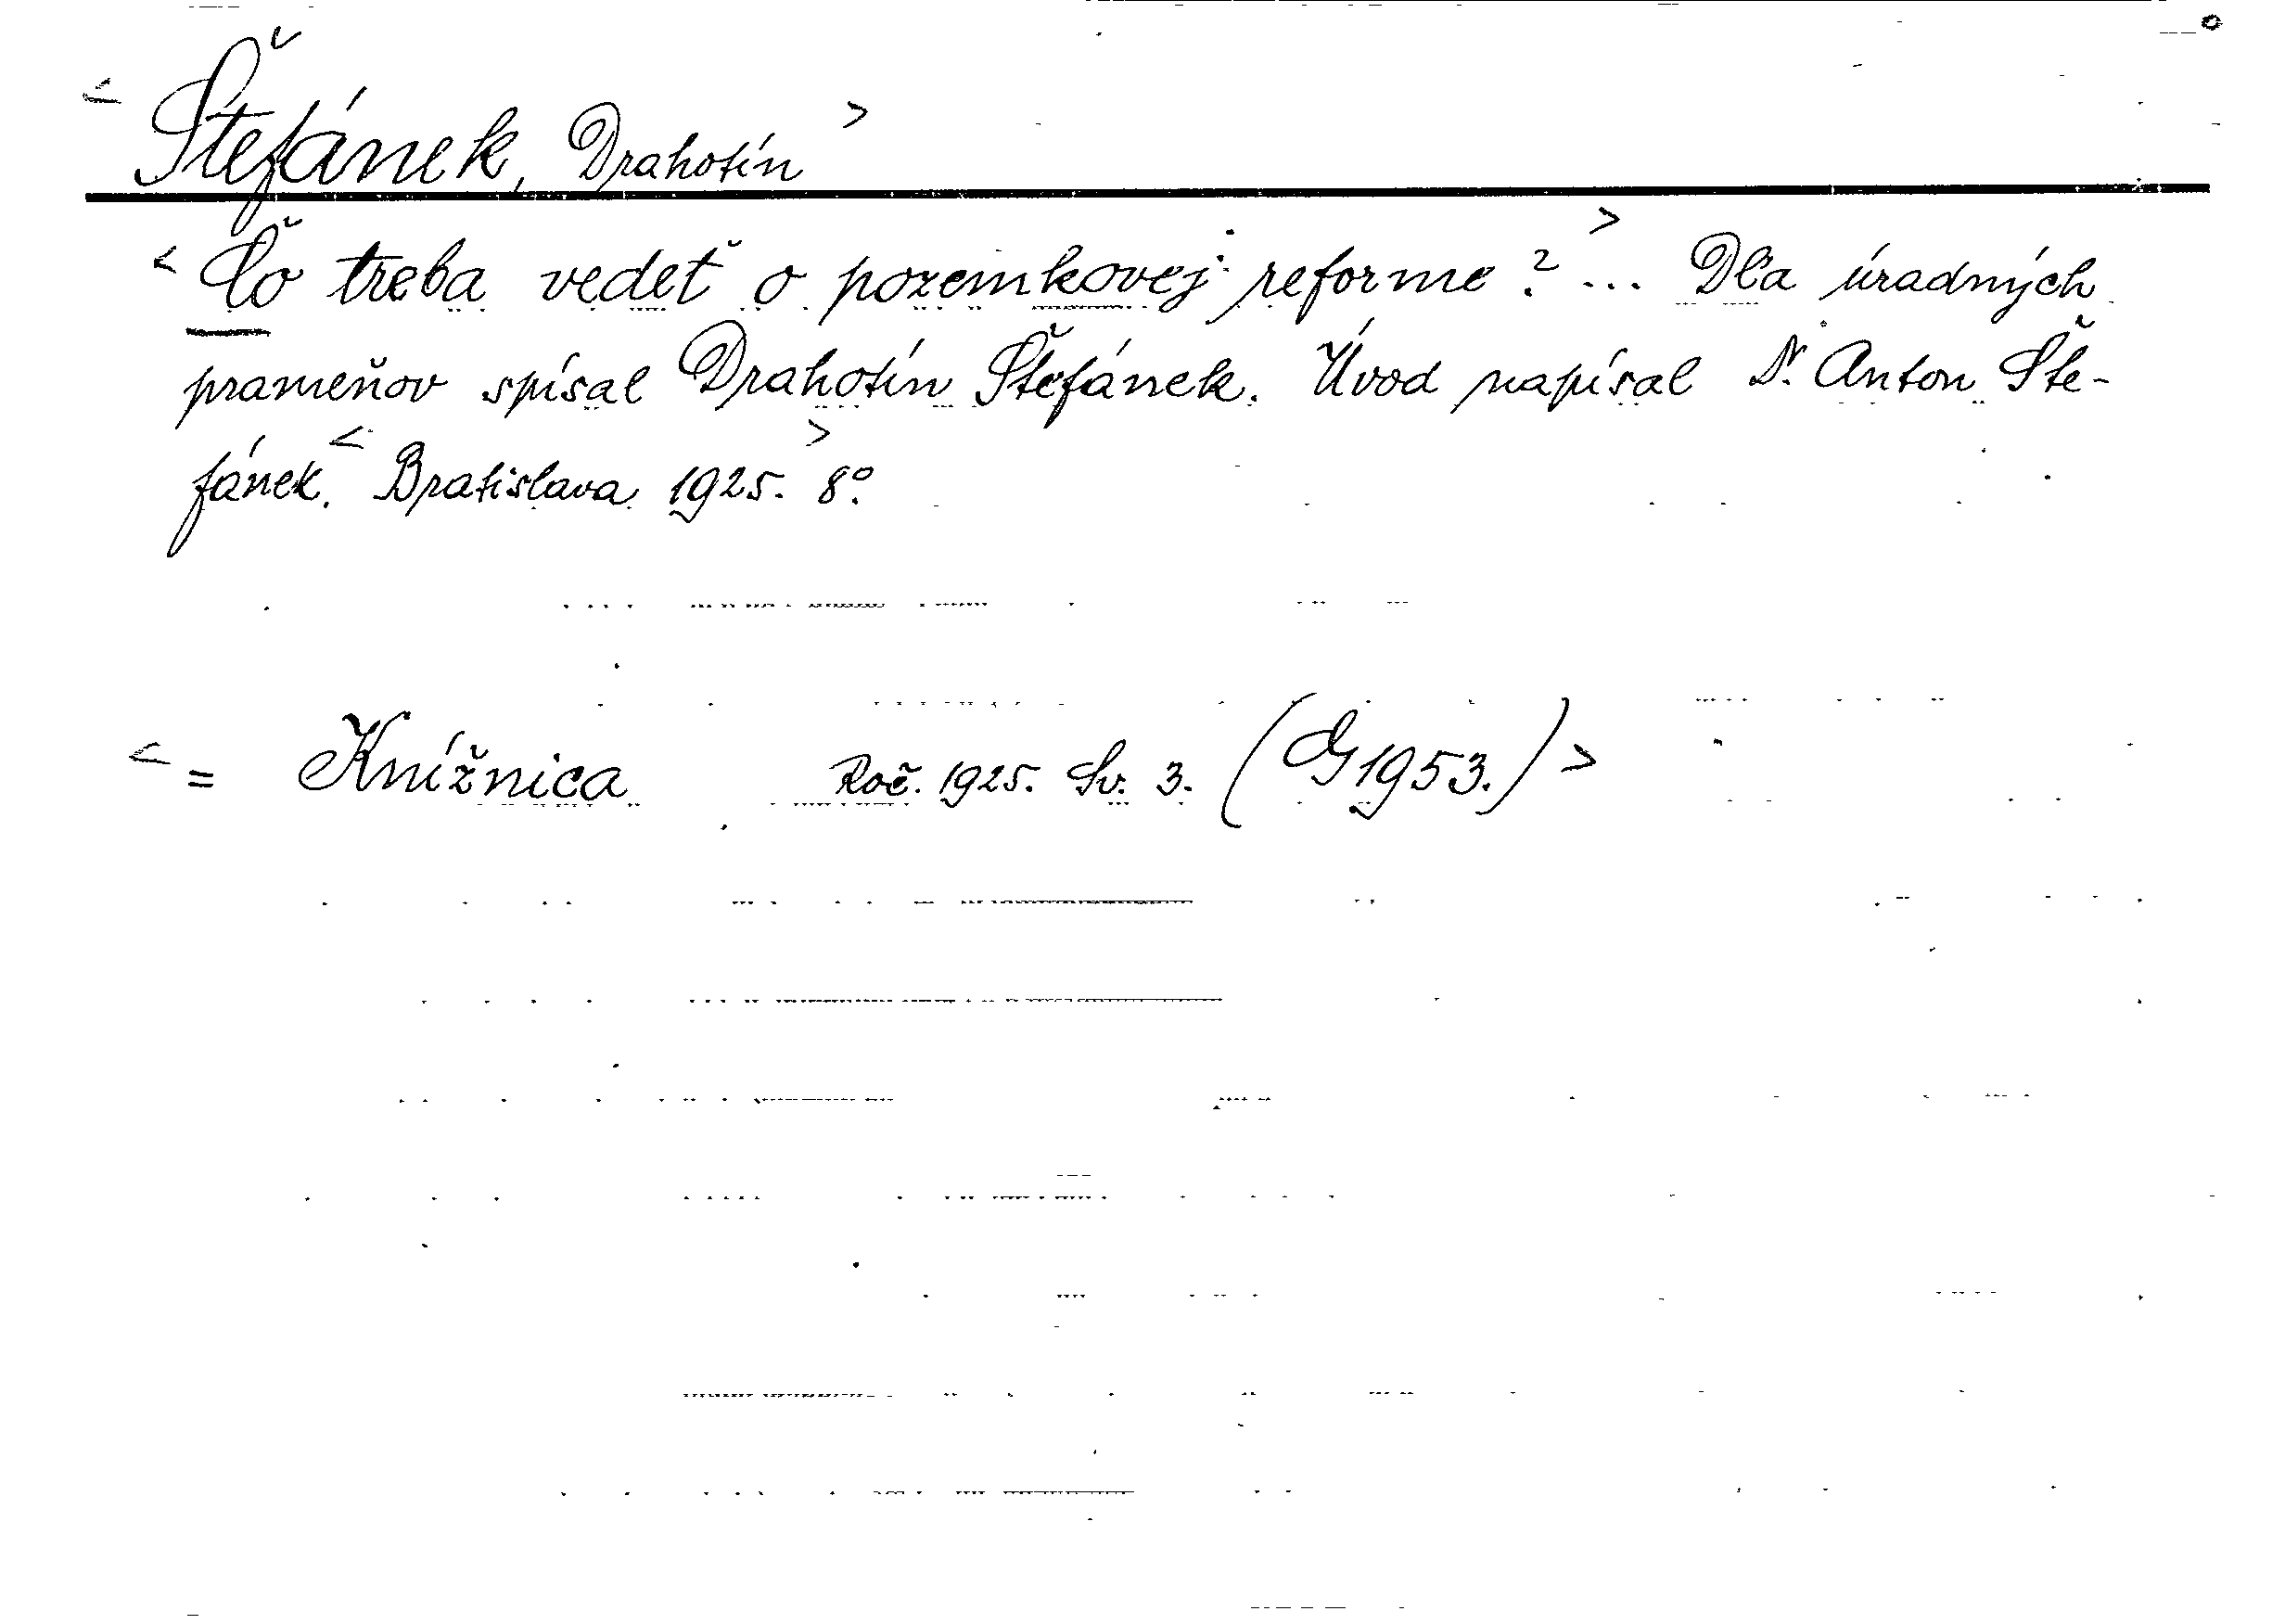 < Štefánek, Drahotín >
< Čo treba vedeť o pozemkovej reforme? > ... Dľa úradných
prameňov spísal Drahotín Štefánek. Úvod napísal Dr. Anton Šte-
fánek. < Bratislava 1925. > 8°.
< = Knížnica Roč. 1925. Sv. 3. (G 1953.) >